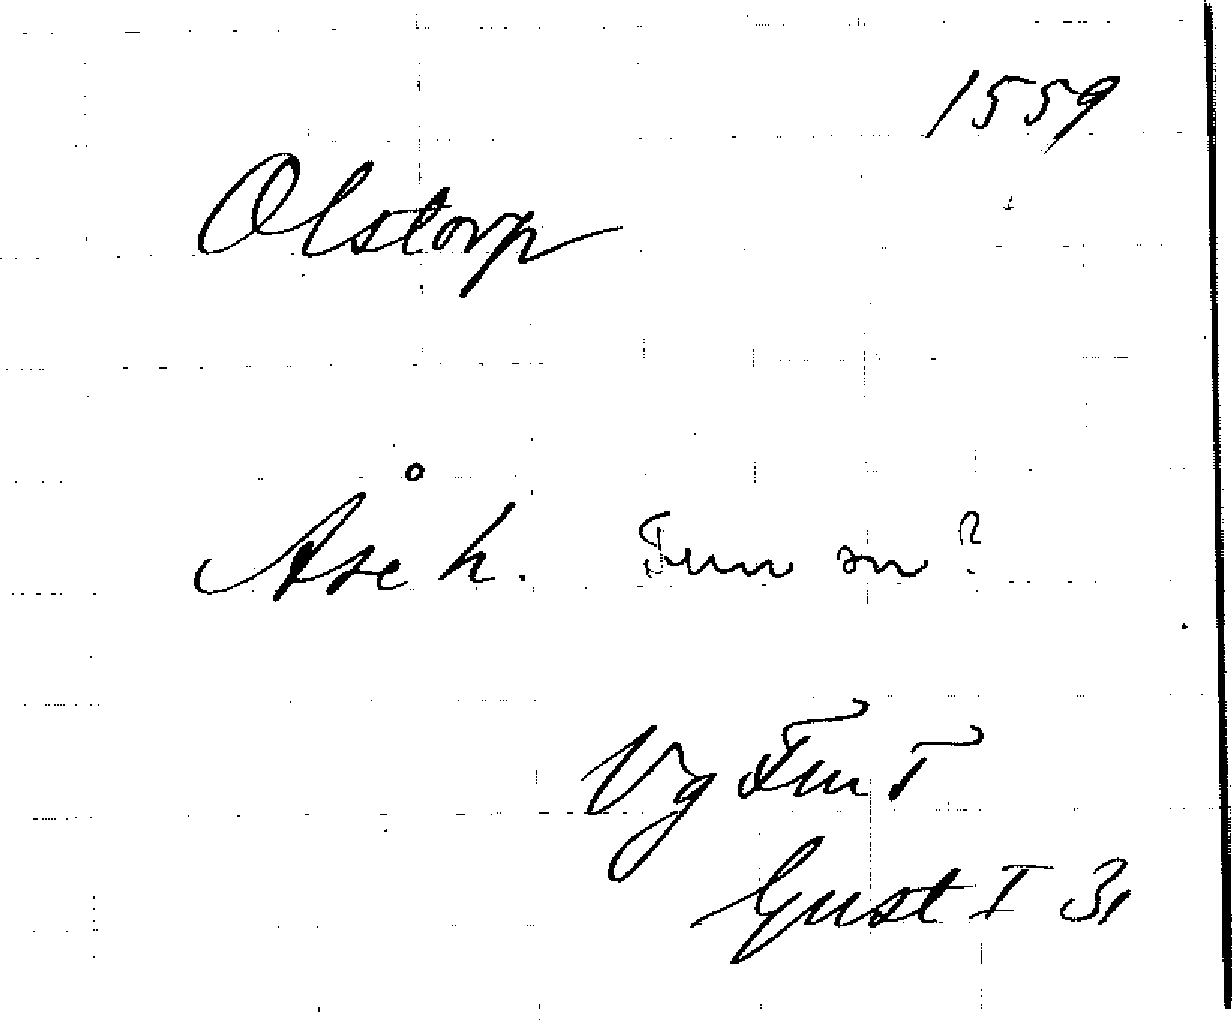 1559
Olstorp
Åse h. Fun sn?
Vg Fun T
Gust I 31